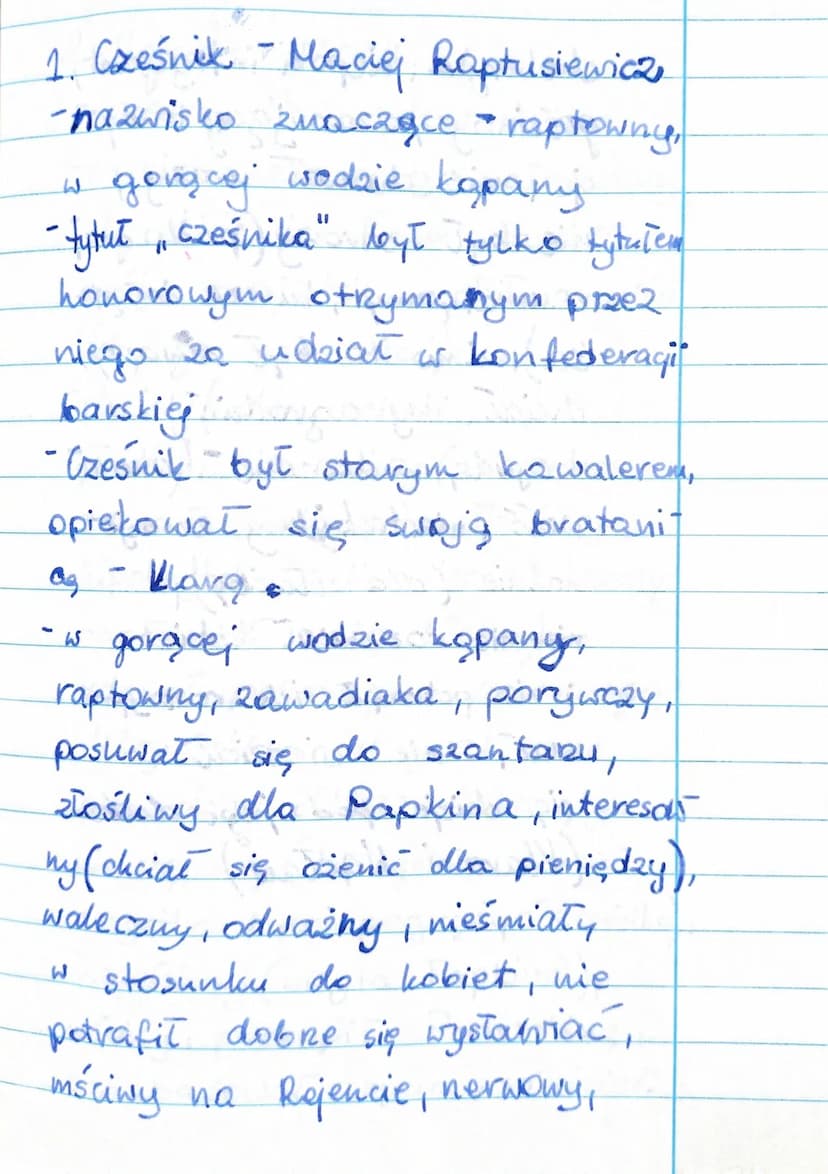 1. Cześnik - Maciej Raptusiewicz,
-nazwisko znaczące - raptowny,
w gorącej wodzie kąpany
-tytuł „cześnika" był tylko tytułem
honorowym otrzymanym przez
niego za udział w konfederacji
barskiej.
-Cześnik - był starym kawalerem,
opiekował się swoją bratani-
cą - Klarą.
-w gorącej wodzie kąpany,
raptowny, zawadiaka, porywczy,
posuwał się do szantażu,
złośliwy dla Papkina, interesow-
ny (chciał się ożenić dla pieniędzy),
waleczny, odważny, nieśmiały
w stosunku do kobiet, nie
potrafił dobrze się wysławiać,
mściwy na Rejencie, nerwowy,